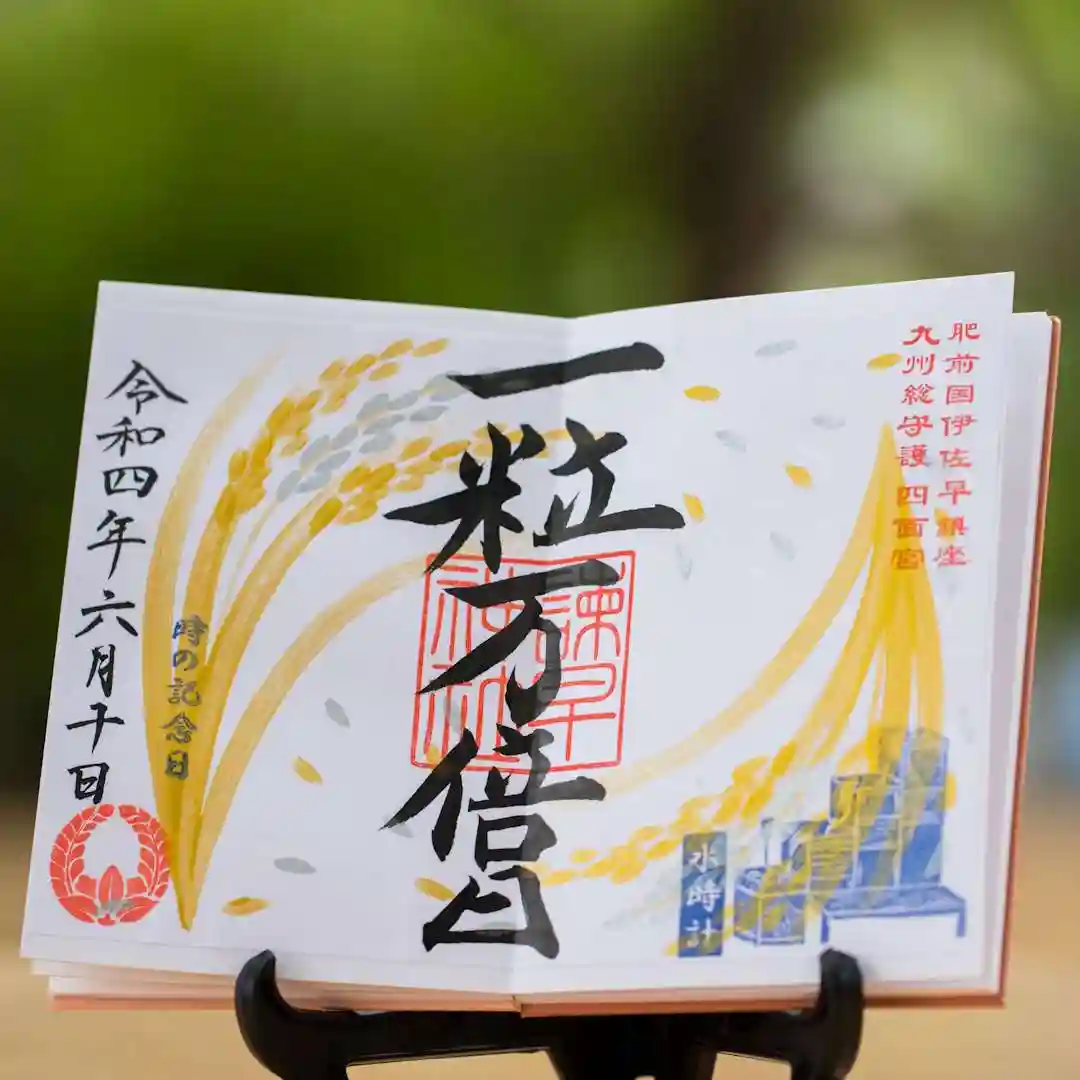 肥前国伊佐早鎮座
九州総守護四面宮
一粒万倍日
諫早神社
水時計
時の記念日
令和四年六月十日